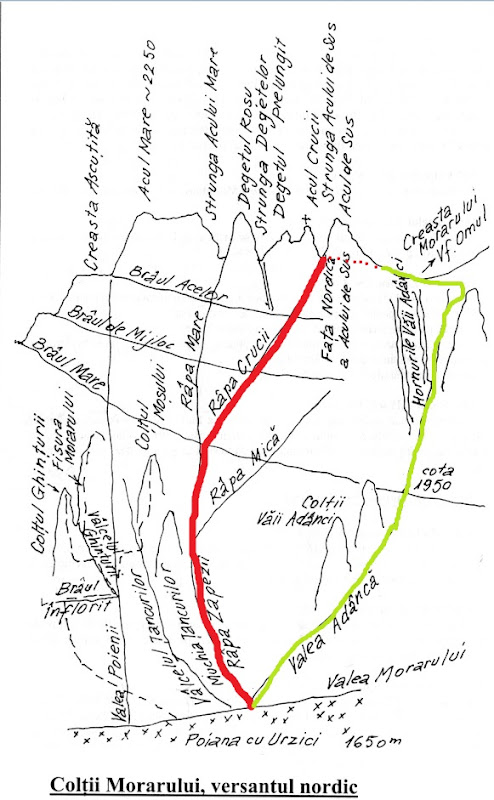 Creasta Ascuțită
Acul Mare ~2250
Strunga Acului Mare
Degetul Roșu
Strunga Degetelor
Degetul prelungit
Acul Crucii
Strunga Acului de Sus
Acul de Sus
Creasta
Morarului
Vf. Omul
Brâul Acelor
Brâul de Mijloc
Brâul Mare
Râpa Mare
Râpa Crucii
Fața Nordică
a Acului de Sus
Hornurile Văii Adânci
Colțul Ghințurii
Fisura
Morarului
Colțul
Moșului
Râpa Mică
cota
1950
Colții
Văii Adânci
Brâul
Înflorit
Valea Poienii
Vâlcelul Țancurilor
Muchia Țancurilor
Râpa Zăpezii
Valea Adâncă
Valea Morarului
Poiana cu Urzici 1650m
Colții Morarului, versantul nordic